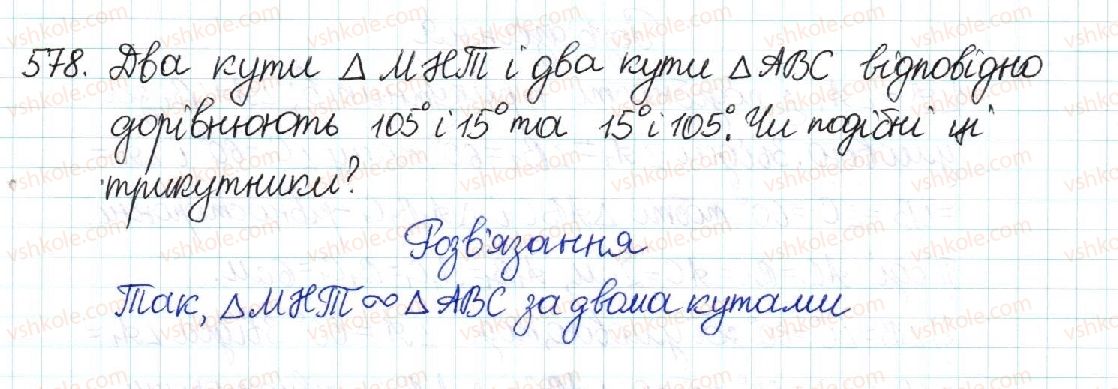 578. Два кути △ МНТ і два кути △ АВС відповідно
дорівнюють 105° і 15° та 15° і 105°. Чи подібні ці
трикутники?
Розв'язання
Так, △ МНТ ∾ △ АВС за двома кутами